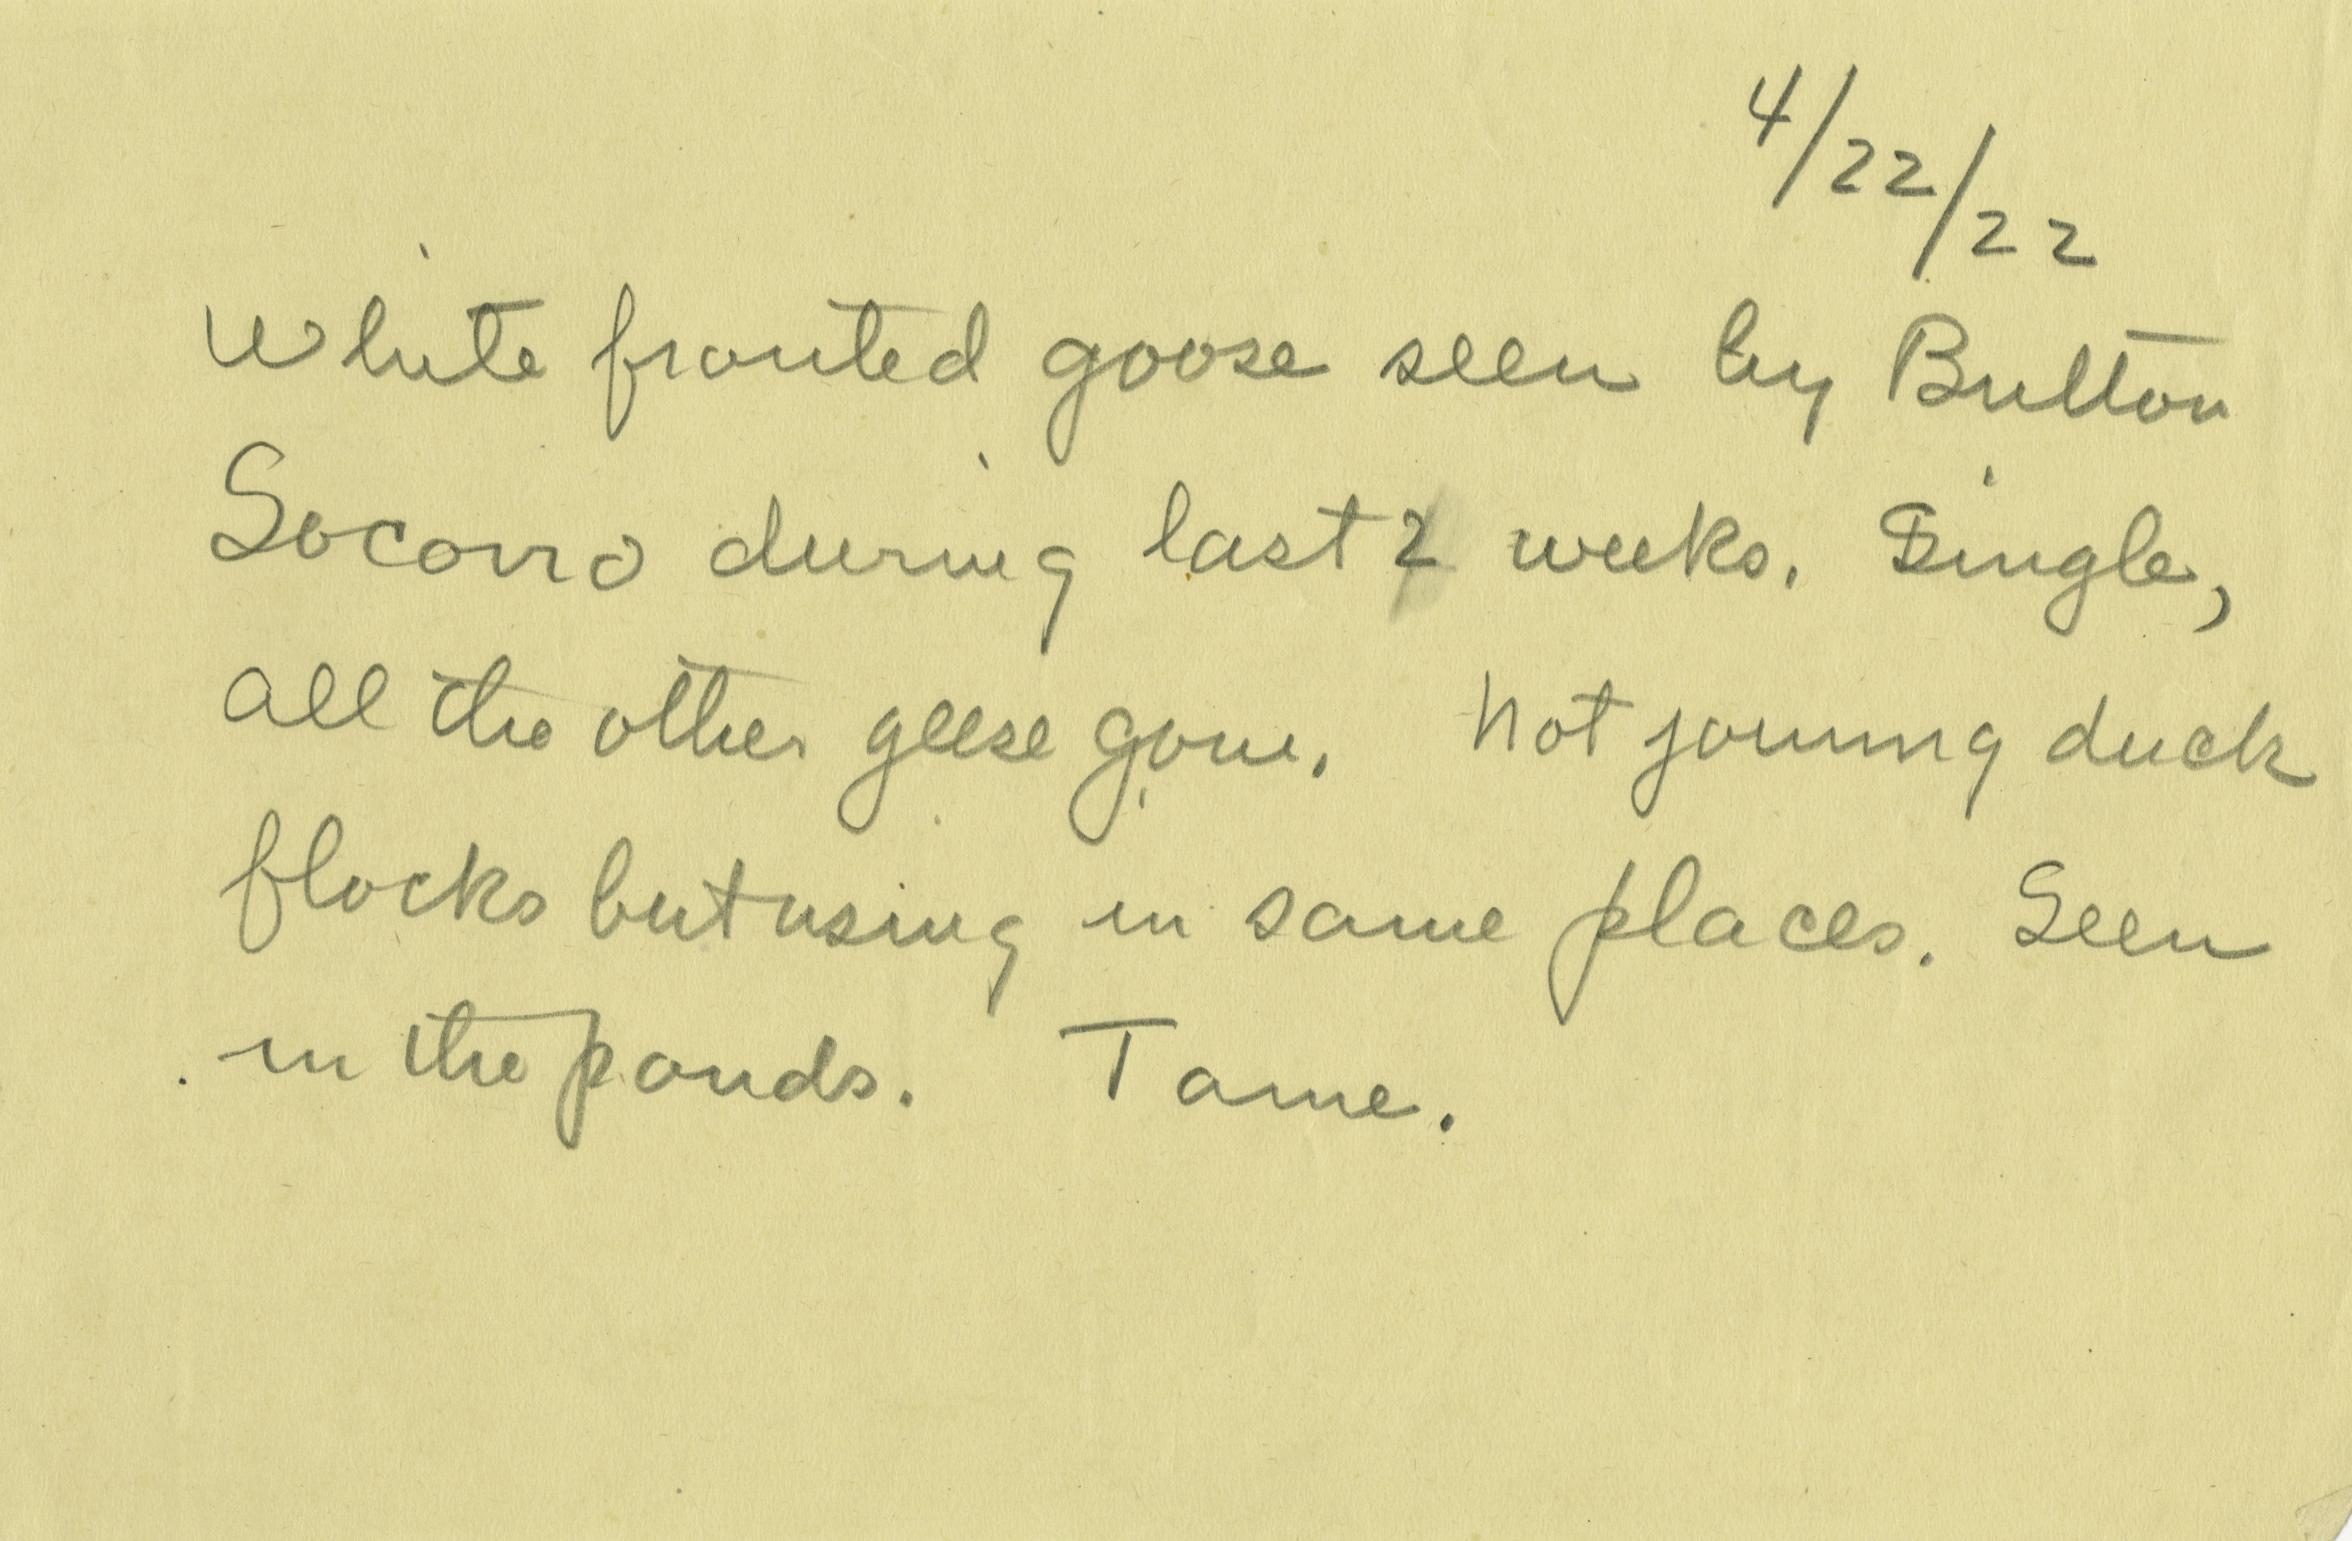 4/22/22
White fronted goose seen by Button
Socorro during last 2 weeks. Single,
all the other geese gone. Not joining duck
flocks but using in same places. Seen
in the ponds. Tame.